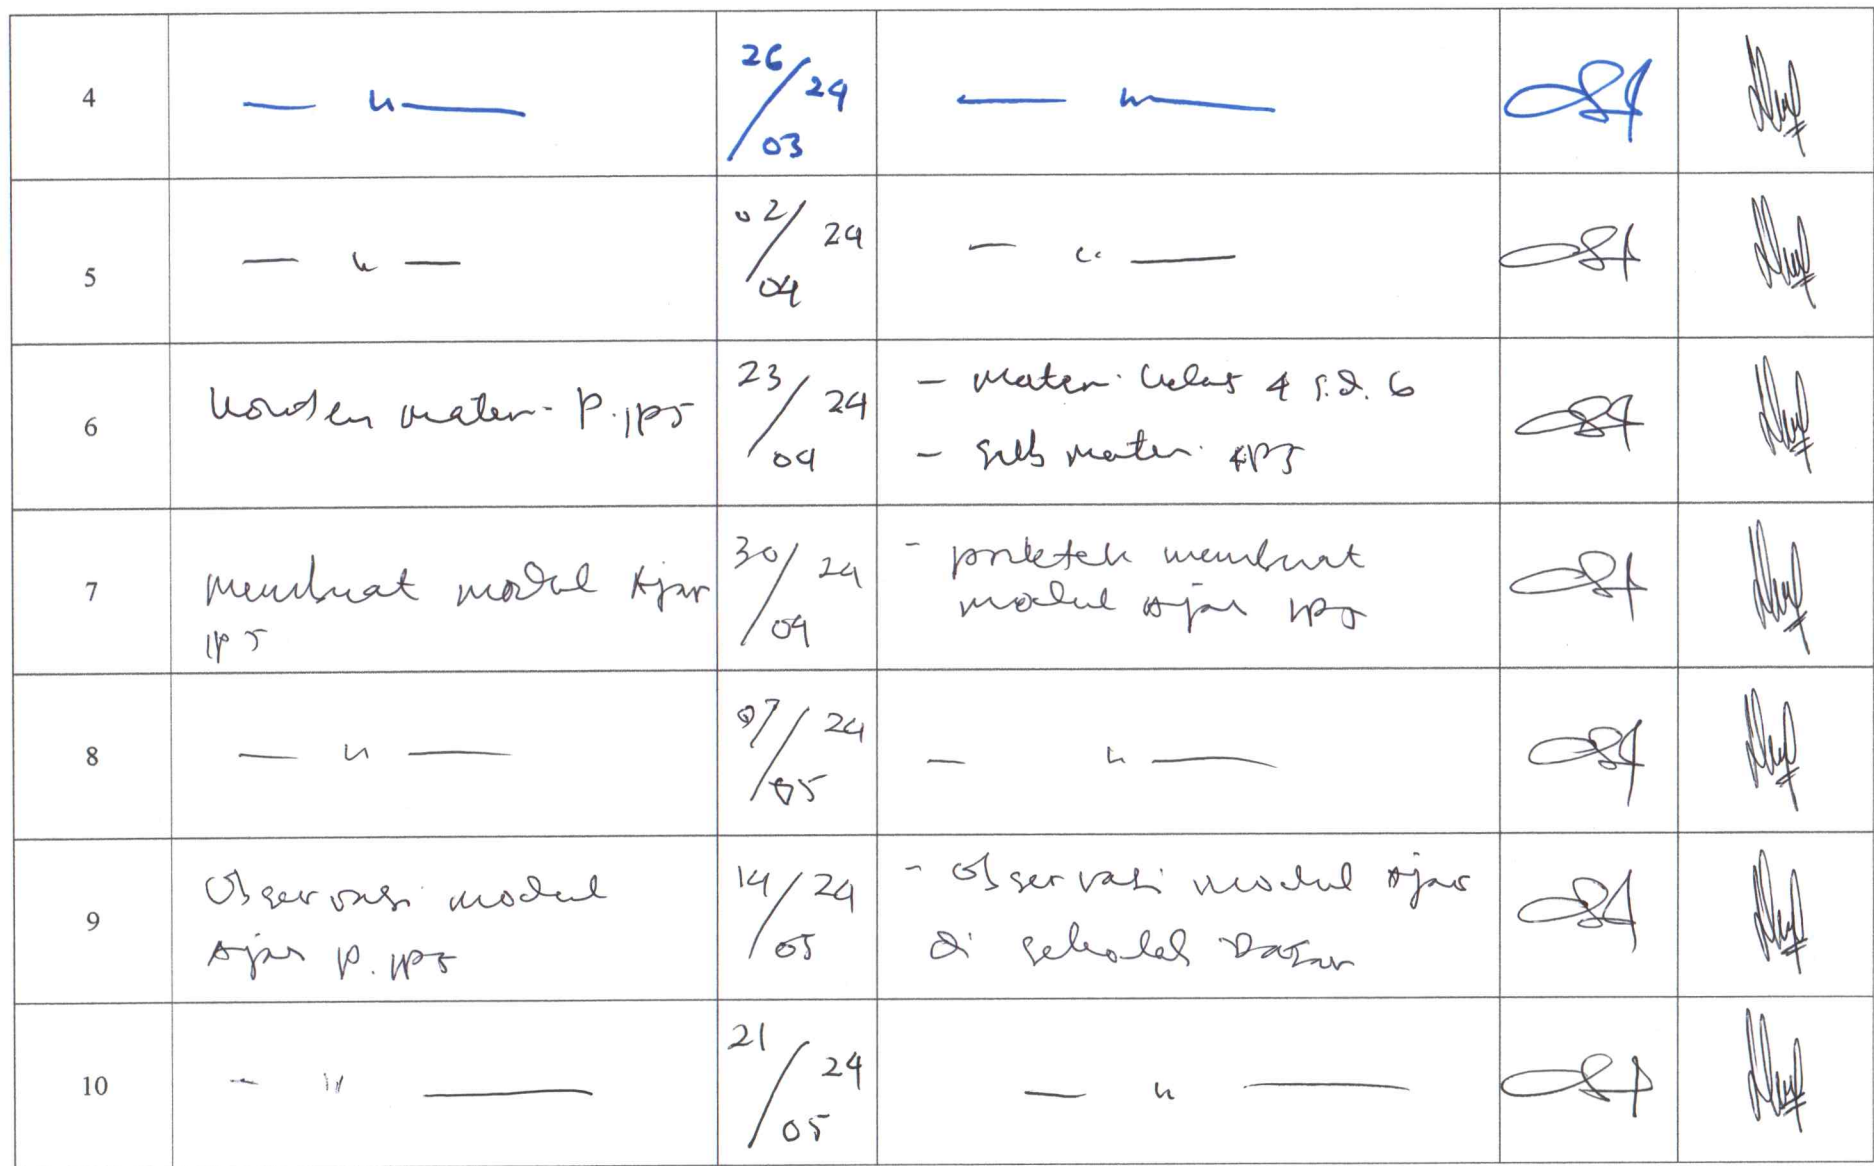 4 — 〃 — 26/03 24 — 〃 —
5 — 〃 — 02/04 24 — 〃 —
6 materi P. IPS 23/04 24 - materi kelas 4 s.d. 6
- sub materi IPS
7 membuat modul Ajar 30/04 24 - praktek membuat
IPS modul Ajar IPS
8 — 〃 — 07/05 24 — 〃 —
9 Observasi modul 14/05 24 - Observasi modul Ajar
Ajar P. IPS di sekolah Dasar
10 — 〃 — 21/05 24 — 〃 —